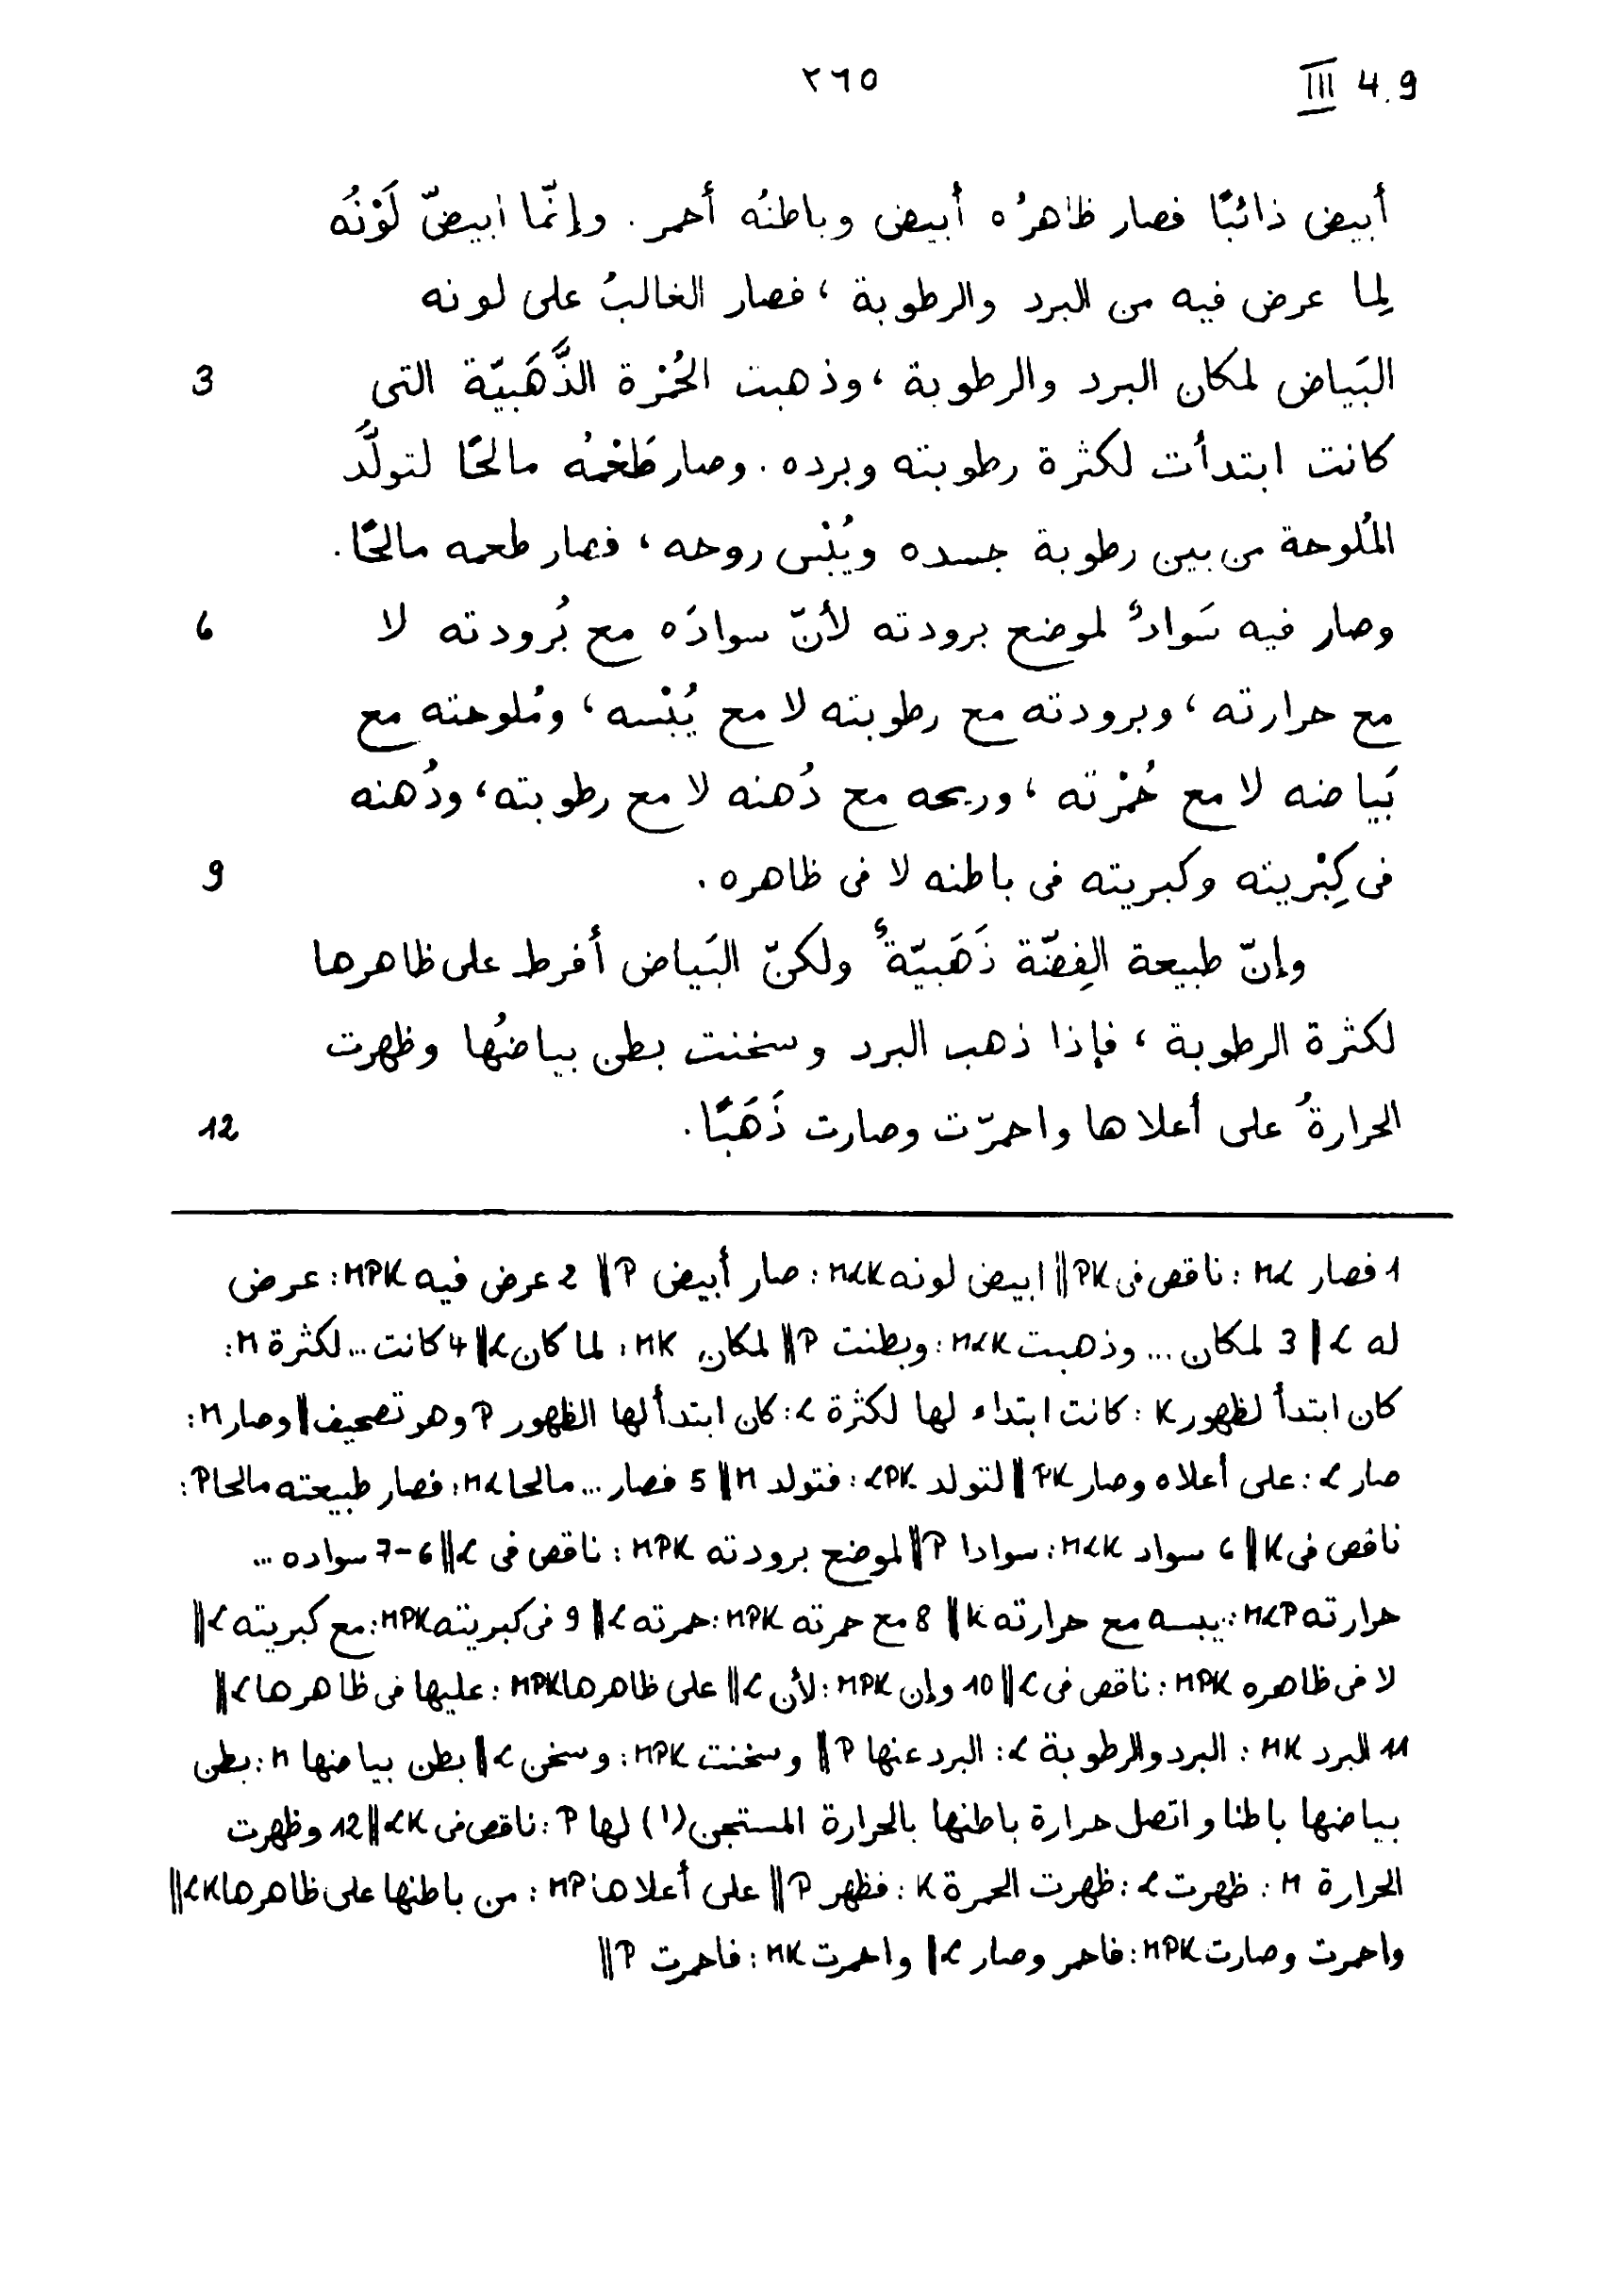 ٢٦٥
III 4.9
أبيض ذائبًا فصار ظاهرُه أبيض وباطنُه أحمر. وإنّما ابيضّ لَوْنُه
لِما عرض فيه من البرد والرطوبة، فصار الغالبُ على لونه
البَياض لمكان البرد والرطوبة، وذهبت الحُمْرة الذَّهَبيّة التى
3
كانت ابتدأت لكثرة رطوبته وبرده. وصار طَعْمُه مالحًا لتولُّد
المُلوحة من بين رطوبة جسده ويُبْس روحه، فصار طعمه مالحًا.
وصار فيه سَوادٌ لموضع برودته لأنّ سوادَه مع بُرودته لا
6
مع حرارته، وبرودته مع رطوبته لا مع يُبْسه، ومُلوحته مع
بَياضه لا مع حُمْرته، وريحه مع دُهنه لا مع رطوبته، ودُهنه
فى كِبْريته وكبريته فى باطنه لا فى ظاهره.
9
وإنّ طبيعة الفِضّة ذَهَبيّةٌ ولكنّ البَياض أفرط على ظاهرها
لكثرة الرطوبة، فإذا ذهب البرد وسخنت بطن بياضُها وظهرت
الحرارةُ على أعلاها واحمرّت وصارت ذَهَبًا.
12
1 فصار ML: ناقص فى PK || ابيض لونه MLK: صار أبيض P || 2 عرض فيه MPK: عرض
له L || 3 لمكان ... وذهبت MLK: وبطنت P || لمكان MK: لما كان L || 4 كانت ... لكثرة M:
كان ابتدأ لظهور K: كانت ابتداء لها لكثرة L: كان ابتدأ لها الظهور P وهو تصحيف || وصار M:
صار L: على أعلاه وصار PK || لتولد LPK: فتولد M || 5 فصار ... مالحا ML: فصار طبيعته مالحا P:
ناقص فى K || 6 سواد MLK: سوادا P || لموضع برودته MPK: ناقص فى L || 6-7 سواده ...
حرارته MLP: يبسه مع حرارته K || 8 مع حمرته MPK: حمرته L || 9 فى كبريته MPK: مع كبريته L ||
لا فى ظاهره MPK: ناقص فى L || 10 وإن MPK: لأن L || على ظاهرها MPK: عليها فى ظاهرها L ||
11 البرد MK: البرد والرطوبة L: البرد عنها P || وسخنت MPK: وسخن L || بطن بياضها M: بطن
بياضها باطنا واتصل حرارة باطنها بالحرارة المستجن (!) لها P: ناقص فى LK || 12 وظهرت
الحرارة M: ظهرت L: ظهرت الحمرة K: فظهر P || على أعلاها MP: من باطنها على ظاهرها LK ||
واحمرت وصارت MPK: فاحمر وصار L || واحمرت MK: فاحمرت P ||